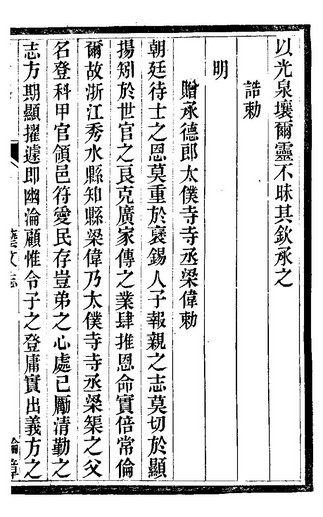 以光泉壤爾靈不昧其欽承之
誥勅
明
贈承德郎太僕寺寺丞梁偉勅
朝廷待士之恩莫重於襃錫人子報親之志莫切於顯
揚矧於世官之良克廣家傳之業肆推恩命實倍常倫
爾故浙江秀水縣知縣梁偉乃太僕寺寺丞梁榘之父
名登科甲官領邑符愛民存豈弟之心處己勵清勤之
志方期顯擢遽即幽淪顧惟令子之登庸實出義方之
藝文志
綸章